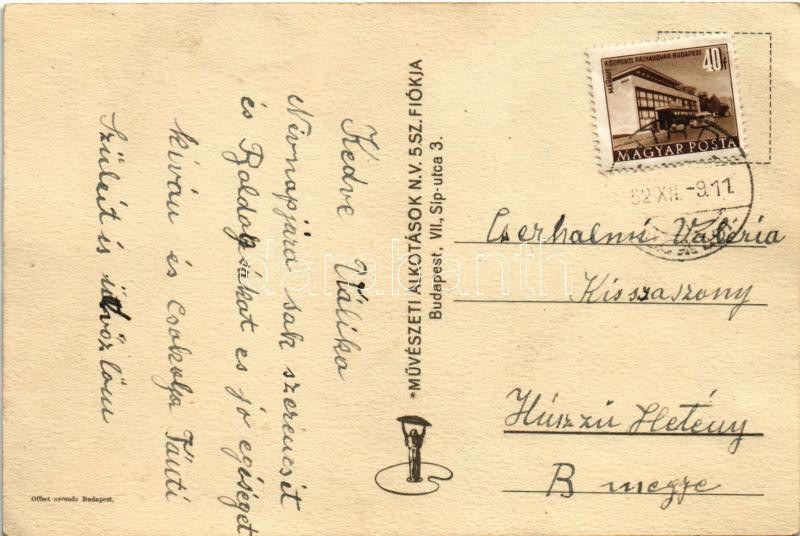 Kedve Válika
Névnapjára sak szerencsét
és Boldogságot es jo egéséget
kíván és Csokolja Fánti
Szüleit is üdvözlöm
MŰVÉSZETI ALKOTÁSOK N.V. 5.SZ. FIÓKJA
Budapest, VII., Síp-utca 3.
Offset-nyomda Budapest.
MÁVAUT KÖZPONTI PÁLYAUDVAR BUDAPEST
40f
MAGYAR POSTA
52 XII. -9.11
Cserhalmi Valéria
Kisszaszony
Húszzú Hetény
B megye
darabanth